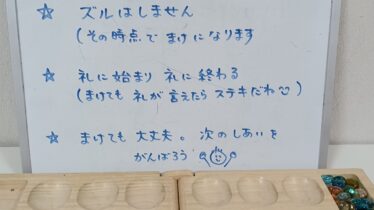 ☆ ズルはしません
(その時点でまけになります
☆ 礼に始まり 礼に終わる
(まけても 礼が言えたら ステキだね
☆ まけても 大丈夫。次のしあいを
がんばろう